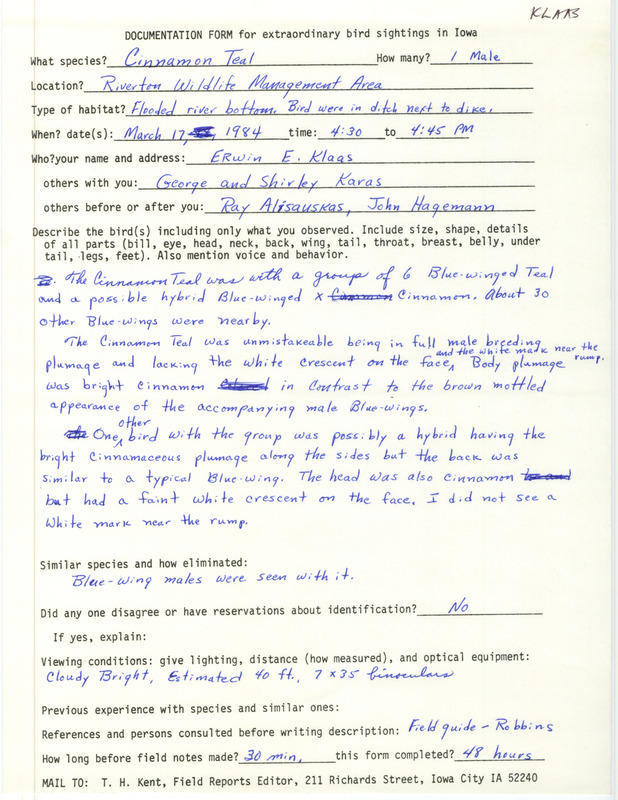 KLAAS
DOCUMENTATION FORM for extraordinary bird sightings in Iowa
What species? Cinnamon Teal How many? 1 Male
Location? Riverton Wildlife Management Area
Type of habitat? Flooded river bottom. Bird were in ditch next to dike.
When? date(s): March 17, 1984 time: 4:30 to 4:45 PM
Who?your name and address: Erwin E. Klaas
others with you: George and Shirley Karas
others before or after you: Ray Alisauskas, John Hagemann
Describe the bird(s) including only what you observed. Include size, shape, details
of all parts (bill, eye, head, neck, back, wing, tail, throat, breast, belly, under
tail, legs, feet). Also mention voice and behavior.
The Cinnamon Teal was with a group of 6 Blue-winged Teal
and a possible hybrid Blue-winged x Cinnamon. About 30
other Blue-wings were nearby.
The Cinnamon Teal was unmistakeable being in full male breeding
plumage and lacking the white crescent on the face and the white mark near the rump. Body plumage
was bright cinnamon in contrast to the brown mottled
appearance of the accompanying male Blue-wings.
One other bird with the group was possibly a hybrid having the
bright Cinnamaceous plumage along the sides but the back was
similar to a typical Blue-wing. The head was also cinnamon
but had a faint white crescent on the face. I did not see a
white mark near the rump.
Similar species and how eliminated:
Blue-wing males were seen with it.
Did any one disagree or have reservations about identification? No
If yes, explain:
Viewing conditions: give lighting, distance (how measured), and optical equipment:
Cloudy Bright, Estimated 40 ft., 7 x 35 binoculars
Previous experience with species and similar ones:
References and persons consulted before writing description: Field guide - Robbins
How long before field notes made? 30 min, this form completed? 48 hours
MAIL TO: T. H. Kent, Field Reports Editor, 211 Richards Street, Iowa City IA 52240